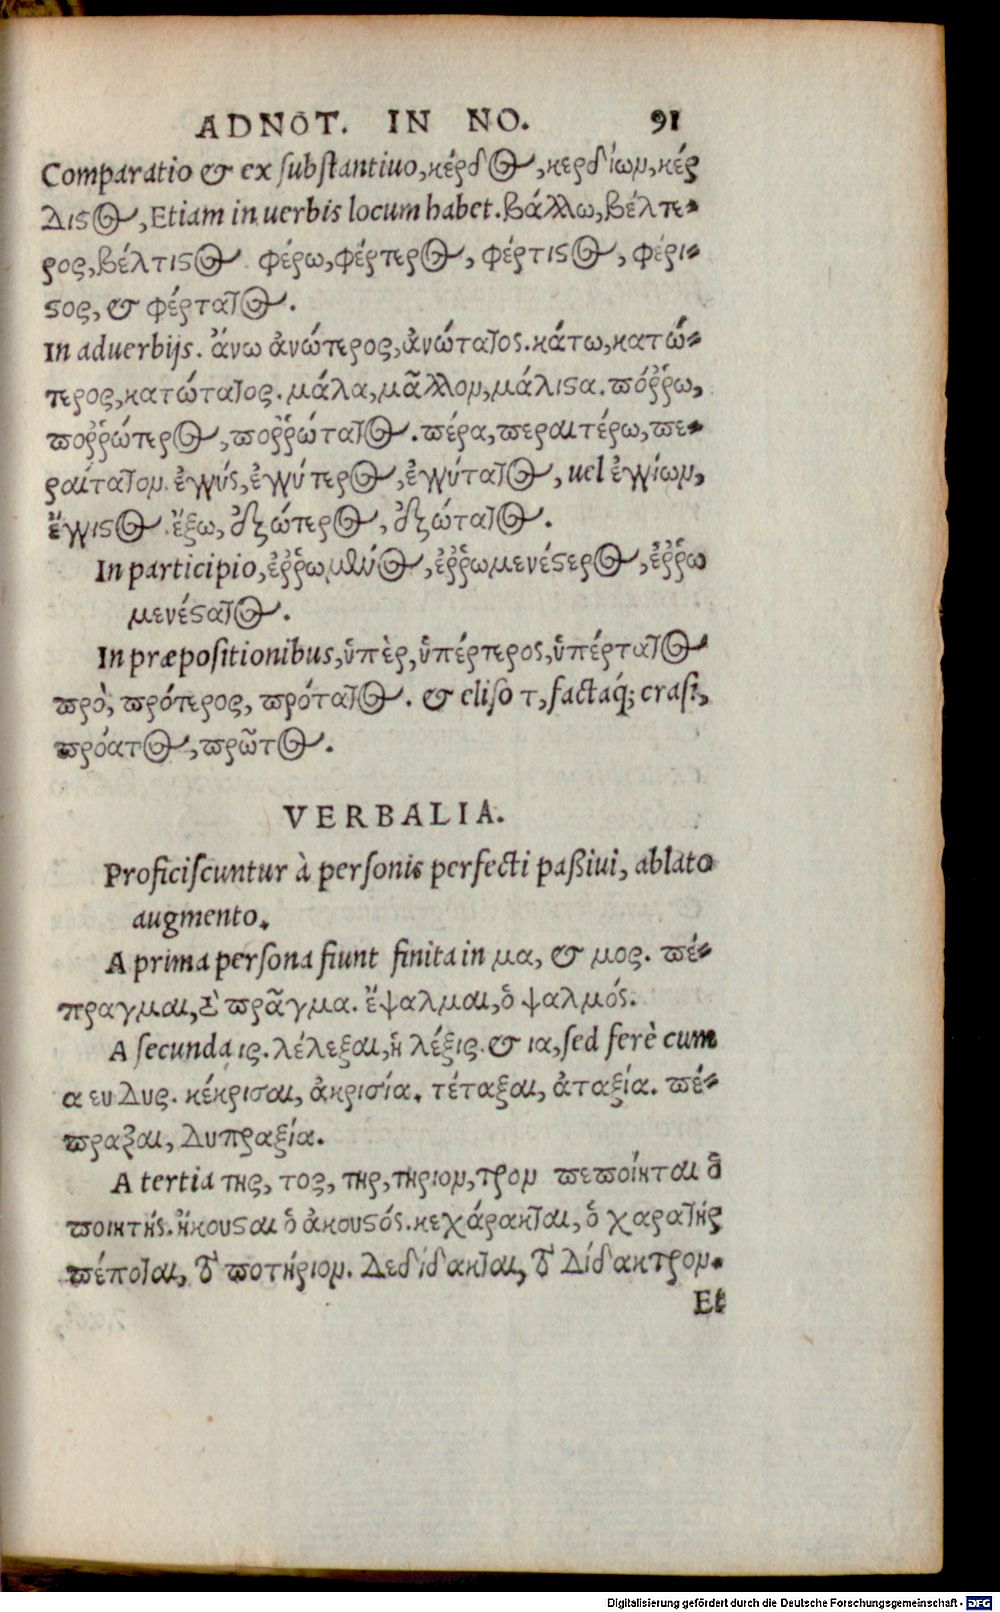 ADNOT. IN NO. 91
Comparatio & ex substantiuo, κέρδος, κερδίων, κέρ
διστος, Etiam in uerbis locum habet. βάλλω, βέλτε-
ρος, βέλτιστος φέρω, φέρτερος, φέρτιστος, φέρι-
στος, & φέρτατος.
In aduerbijs. ἄνω ἀνώτερος, ἀνώτατος. κάτω, κατώ-
τερος, κατώτατος. μάλα, μᾶλλον, μάλιστα. πόῤῥω,
ποῤῥώτερος, ποῤῥώτατος. πέρα, περαιτέρω, πε-
ραίτατον. ἐγγύς, ἐγγύτερος, ἐγγύτατος, uel ἐγγίων,
ἔγγιστος. ἔξω, ἐξώτερος, ἐξώτατος.
In participio, ἐῤῥωμένος, ἐῤῥωμενέστερος, ἐῤῥω
μενέστατος.
In præpositionibus, ὑπὲρ, ὑπέρτερος, ὑπέρτατος
πρὸ, πρότερος, πρότατος. & eliso τ, factaq́; crasi,
πρόατος, πρῶτος.
VERBALIA.
Proficiscuntur à personis perfecti paßiui, ablato
augmento.
A prima persona fiunt finita in μα, & μος. πέ-
πραγμαι, τὸ πρᾶγμα. ἔψαλμαι, ὁ ψαλμός.
A secunda ις. λέλεξαι, ἡ λέξις. & ια, sed ferè cum
α ευ δυς. κέκρισαι, ἀκρισία. τέταξαι, ἀταξία. πέ-
πραξαι, δυπραξία.
A tertia της, τος, τηρ, τηριον, τρον πεποίηται ὁ
ποιητής. ἤκουσαι ὁ ἀκουστός. κεχάρακται, ὁ χαρακτήρ
πέποται, τὸ ποτήριον. δεδίδακται, τὸ δίδακτρον.
Et
Digitalisierung gefördert durch die Deutsche Forschungsgemeinschaft - DFG